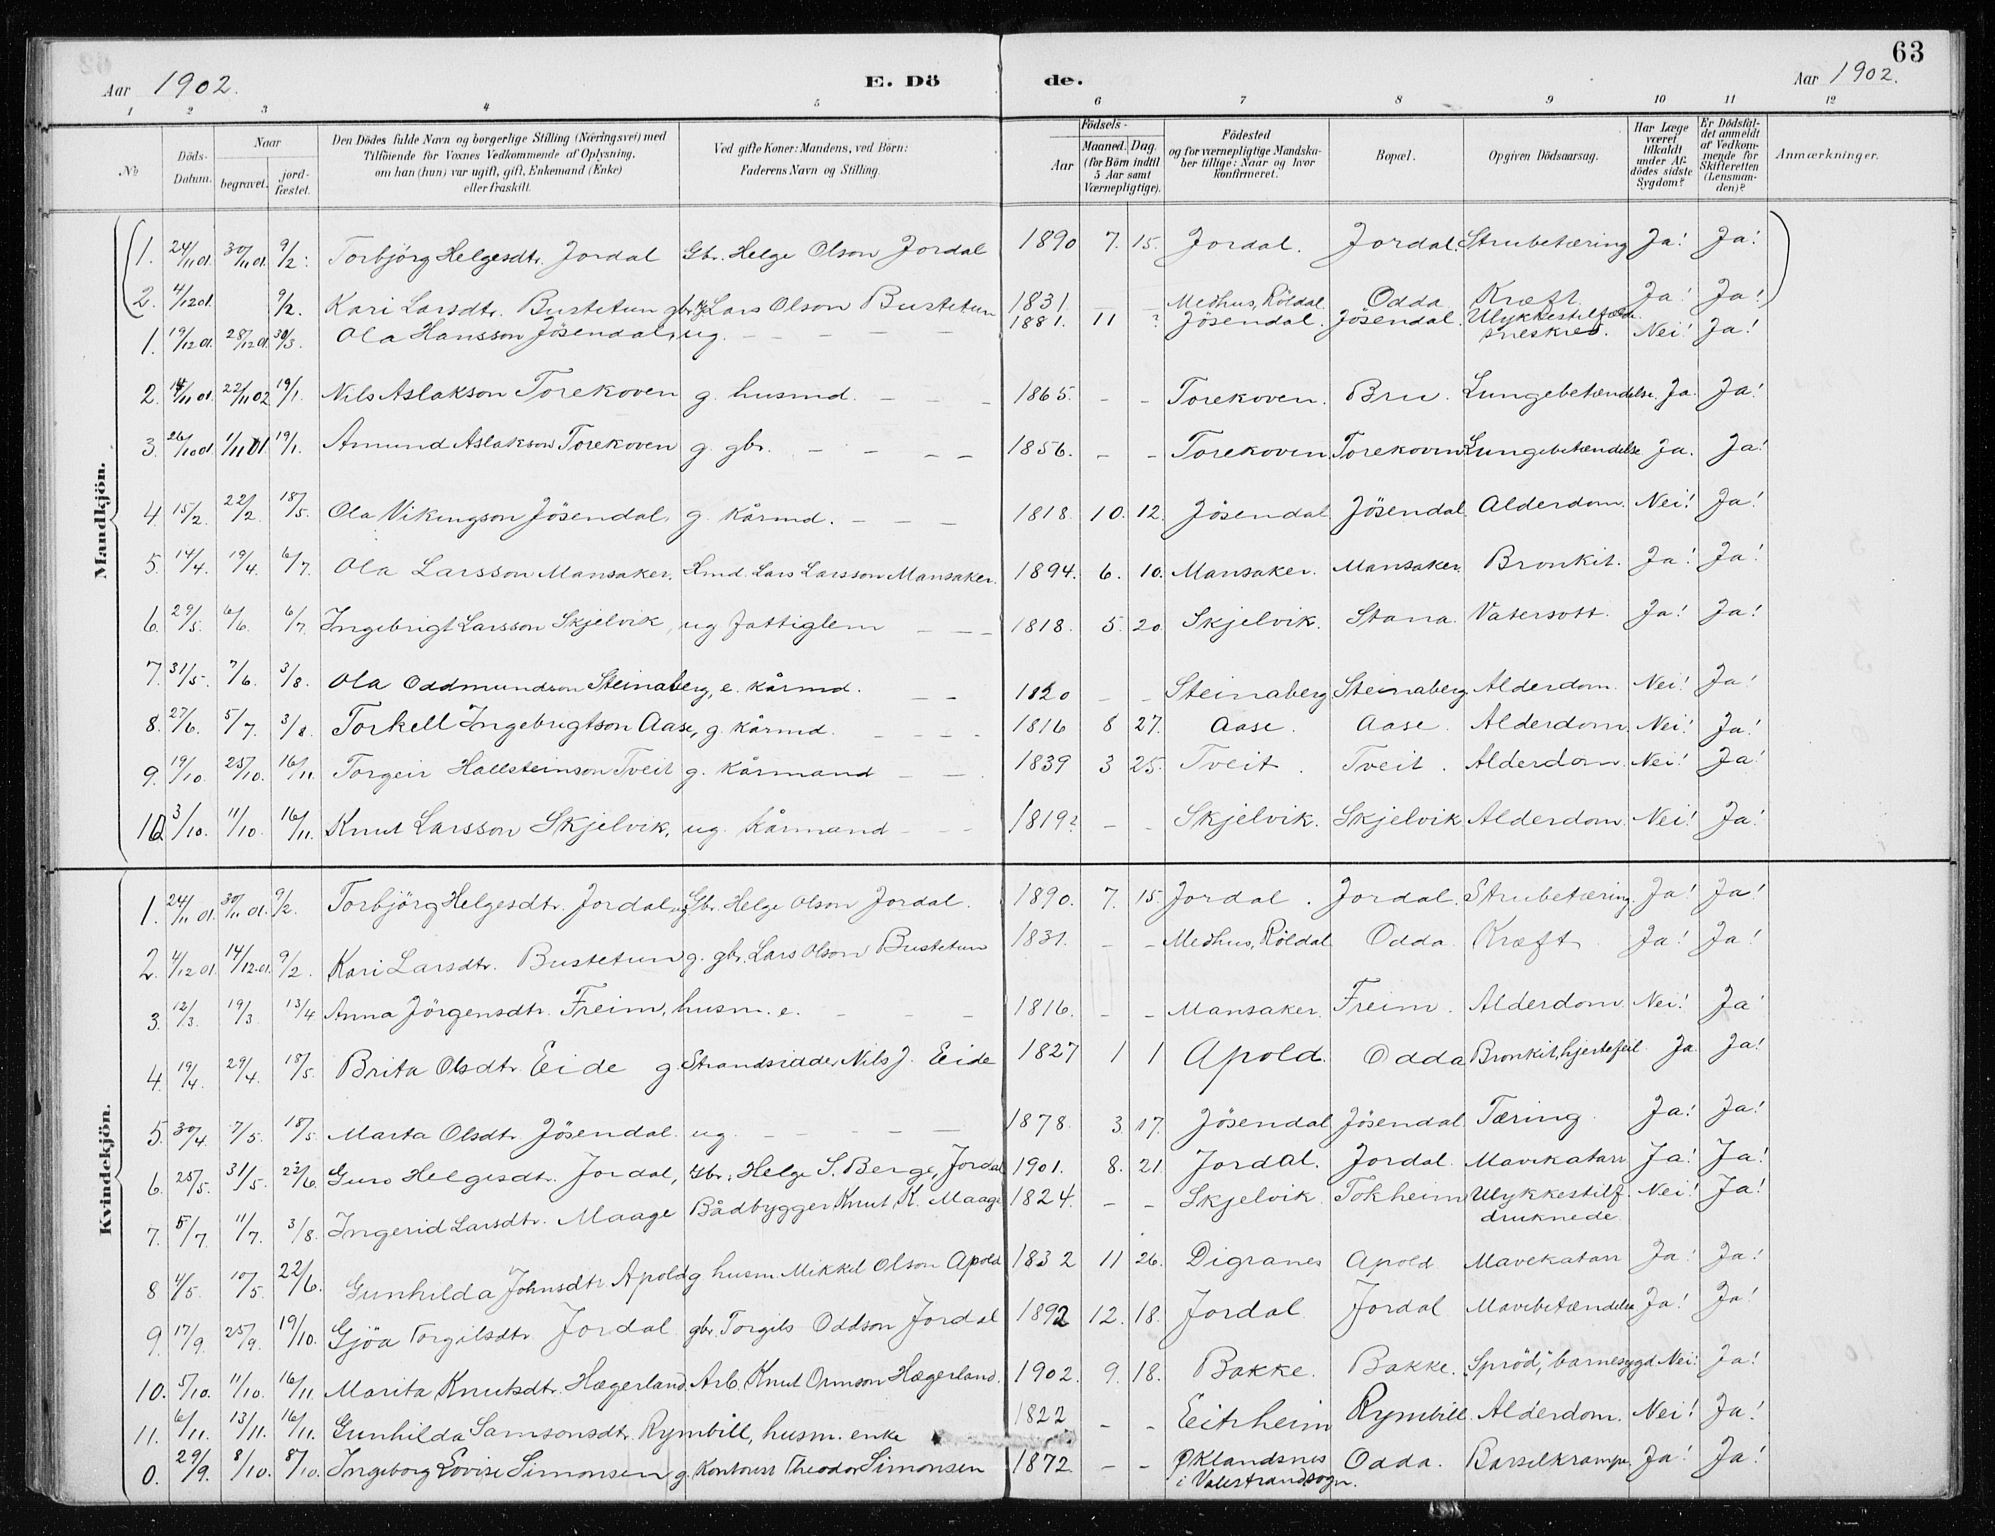 63
Aar 1902. E. Dö de. Aar 1902.
1 2 3 4 5 6 7 8 9 10 11 12
No Döds-Datum. Naar begravet. jord-fæstet. Den Dödes fulde Navn og borgerlige Stilling (Næringsvei) med Tilföiende for Voxnes Vedkommende af Oplysning, om han (hun) var ugift, gift, Enkemand (Enke) eller fraskilt. Ved gifte Koner: Mandens, ved Börn: Faderens Navn og Stilling. Födsels- Aar Maaned. Dag. (for Börn indtil 5 Aar samt Værnepligtige). Födested og for værnepligtige Mandskaber tillige: Naar og hvor konfirmeret. Bopæl. Opgiven Dödsaarsag. Har Læge været tilkaldt under Afdödes sidste Sygdom? Er Dödsfaldet anmeldt af Vedkommende for Skifteretten (Lensmanden)? Anmærkninger.
Mandkjön.
1. 24/11 01. 30/11 01. 9/2. Torbjörg Helgesdtr. Jordal Gbr. Helge Olson Jordal 1890 7. 15. Jordal. Jordal. Strubetæring Ja! Ja!
2. 4/12 01. 9/2. Kari Larsdtr. Bustetun gbr. Lars Olson Bustetun 1831 – – Medhus, Röldal Odda Kræft Ja! Ja!
1. 19/12 01. 28/12 01. 30/3. Ola Hansson Jösendal, ug. – – – – 1881. 11 ? Jösendal. Jösendal. Ulykkestilfælde sneskred. Nei! Ja!
2. 14/11 01. 22/11 02 19/1. Nils Aslakson Torekoven g. husmd. – – – 1865. – – Torekoven. Bru. Lungebetændelse. Ja. Ja!
3. 26/10 01. 1/11 01. 19/1. Amund Aslakson Torekoven g. gbr. – – – – 1856. – – Torekoven Torekoven Lungebetændelse Ja. Ja!
4. 15/2. 22/2. 18/5. Ola Vikingson Jösendal, g. kårmd. – – – 1818. 10. 12. Jösendal Jösendal. Alderdom. Nei! Ja!
5. 14/4. 19/4. 6/7. Ola Larsson Mansaker. Hmd. Lars Larsson Mansaker. 1894. 6. 10. Mansaker. Mansaker. Bronkit. Ja! Ja!
6. 29/5. 6/6. 6/7. Ingebrigt Larsson Skjelvik, ug fattiglem – – – 1818. 5. 20. Skjelvik. Stana. Vatersott. Ja! Ja!
7. 31/5. 7/6. 3/8. Ola Oddmundson Steinaberg, e. kårmd. – – 1820 – – Steinaberg Steinaberg Alderdom. Nei! Ja!
8. 27/6. 5/7. 3/8. Torkell Ingebrigtson Aase, g. kårmd. – – – – 1816 8 27. Aase. Aase. Alderdom. Nei! Ja!
9. 19/10. 25/10. 16/11. Torgeir Hallsteinson Tveit g. kårmand – – 1839 3 25. Tveit. Tveit. Alderdom. Nei! Ja!
10 3/10. 11/10. 16/11. Knut Larsson Skjelvik, ug. kårmand – – – 1819? – – Skjelvik. Skjelvik Alderdom. Nei! Ja!
Kvindekjön.
1. 24/11 01. 30/11 01. 9/2. Torbjörg Helgesdtr. Jordal, Gbr. Helge Olson Jordal. 1890. 7. 15. Jordal. Jordal. Strubetæring. Ja! Ja!
2. 4/12 01. 14/12 01. 9/2. Kari Larsdtr. Bustetun g. gbr. Lars Olson Bustetun 1831. – – Medhus, Röldal Odda Kræft Ja! Ja!
3. 12/3. 19/3 13/4 Anna Jörgensdtr. Freim, husm. e. – – – 1816. – – Mansaker. Freim. Alderdom Nei! Ja!
4. 19/4. 29/4. 18/5. Brita Olsdtr. Eide g. Strandsidder Nils J. Eide 1827 1 1 Apold. Odda Bronkit, hjertefeil. Ja Ja!
5. 30/4. 7/5. 18/5 Marta Olsdtr. Jösendal. ug. – – – – 1878. 3. 17. Jösendal Jösendal Tæring. Ja! Ja!
6. 25/5. 31/5. 22/6. Guro Helgesdtr. Jordal, Gbr. Helge S. Berge, Jordal 1901. 8. 21. Jordal. Jordal. Mavekatarr Ja! Ja!
7. 5/7. 11/7. 3/8. Ingerid Larsdtr. Maage Bådbygger Knut K. Maage 1824. – – Skjelvik. Tokheim Ulykkestilf. druknede. Nei! Ja!
8 4/5. 10/5. 22/6. Gunhilda Johnsdtr Apold g husm Mikkel Olson Apold 1832 11 26. Digranes Apold Mavekatarr Ja! Ja!
9. 17/9. 25/9. 19/10. Gjöa Torgilsdtr. Jordal gbr. Torgils Oddson Jordal 1892 12. 18. Jordal Jordal Mavebetændelse Ja! Ja!
10. 5/10. 11/10. 16/11. Marita Knutsdtr. Hægerland. Arb. Knut Ormson Hægerland. 1902. 9. 18. Bakke. Bakke. "Spröd," barnesygd Nei! Ja!
11. 6/11. 13/11. 16/11. Gunhilda Samsonsdtr. Rymbill, husm. enke 1822 – – Eitrheim Rymbill. Alderdom. Nei! Ja!
0. 29/9. 8/10. 8/10. Ingeborg Lovise Simonsen g. Kontorist Theodor Simonsen 1872 – – Øklandsnes i Valestrandsogn. Odda. Barselkrampe Ja! Ja!